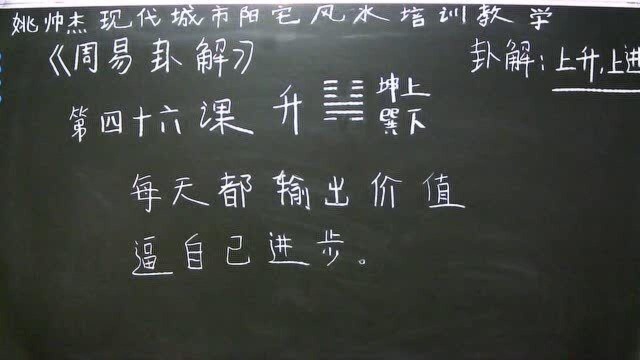 姚帅杰现代城市阳宅风水培训教学
《周易卦解》
卦解:上升,上进
第四十六课 升 坤上
巽下
每天都输出价值
逼自己进步。